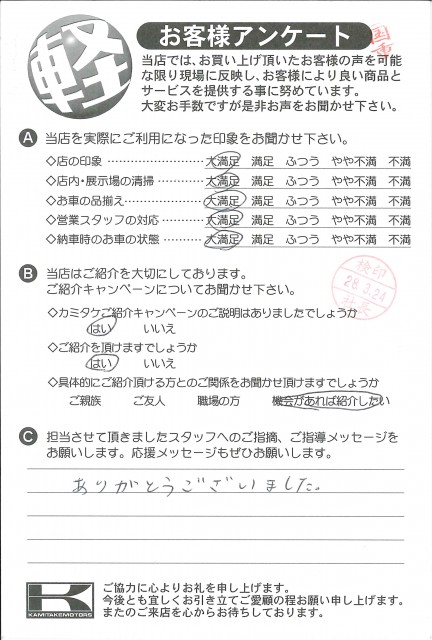 軽
お客様アンケート
国重
当店では、お買い上げ頂いたお客様の声を可能
な限り現場に反映し、お客様により良い商品と
サービスを提供する事に努めています。
大変お手数ですが是非お声をお聞かせ下さい。
A 当店を実際にご利用になった印象をお聞かせ下さい。
◇店の印象 ‥‥‥‥‥‥‥‥ 大満足 満足 ふつう やや不満 不満
◇店内・展示場の清掃 ‥‥‥‥ 大満足 満足 ふつう やや不満 不満
◇お車の品揃え ‥‥‥‥‥‥ 大満足 満足 ふつう やや不満 不満
◇営業スタッフの対応 ‥‥‥‥ 大満足 満足 ふつう やや不満 不満
◇納車時のお車の状態 ‥‥‥‥ 大満足 満足 ふつう やや不満 不満
B 当店はご紹介を大切にしております。
ご紹介キャンペーンについてお聞かせ下さい。
検印
28.3.24
社長
◇カミタケご紹介キャンペーンのご説明はありましたでしょうか
はい いいえ
◇ご紹介を頂けますでしょうか
はい いいえ
◇具体的にご紹介頂ける方とのご関係をお聞かせ頂けますでしょうか
ご親族 ご友人 職場の方 機会があれば紹介したい
C 担当させて頂きましたスタッフへのご指摘、ご指導メッセージを
お願いします。応援メッセージもぜひお願いします。
ありがとうございました。
K
KAMITAKEMOTORS
ご協力に心よりお礼を申し上げます。
今後とも宜しくお引き立てご愛顧の程お願い申し上げます。
またのご来店を心からお待ちしております。